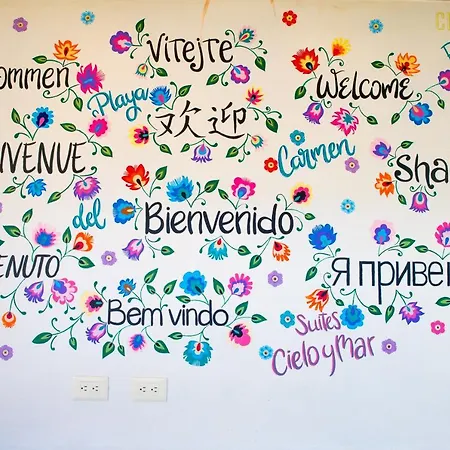 Vítejte
ommen
Welcome
Playa
欢迎
ENVENUE
Carmen
Sha
del
Bienvenido
ENUTO
Я приве
Bem vindo
Suites
Cielo y Mar